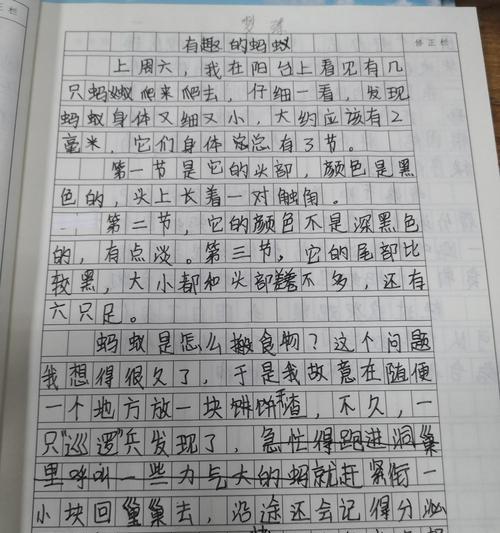 有趣的蚂蚁
修正栏
上周六，我在阳台上看见有几
只蚂蚁爬来爬去，仔细一看，发现
蚂蚁身体又细又小，大约应该有2
毫米，它们身体总有3节。
第一节是它的头部，颜色是黑
色的，头上长着一对触角。
第二节，它的颜色不是深黑色
的，有点淡。第三节，它的尾部比
较黑，大小都和头部差不多，还有
六只足。
蚂蚁是怎么搬食物？这个问题
我想得很久了，于是我故意在随便
一个地方放一块饼干渣，不久，一
只“巡逻”兵发现了，急忙得跑进洞巢
里呼叫一些力气大的蚂就赶紧衔一
小块回巢去，沿途还会记得分泌